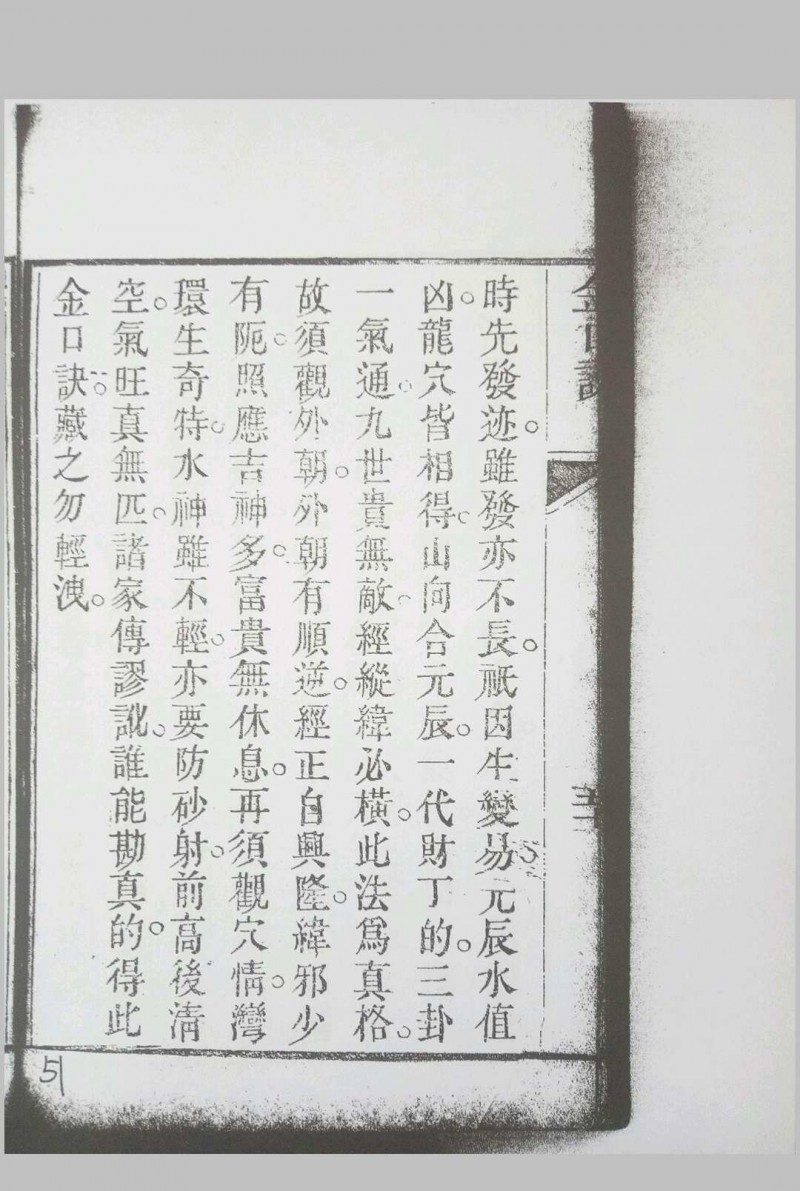 時先發迹。雖發亦不長。祇因生變易。元辰水值
凶。龍穴皆相得。山向合元辰。一代財丁的。三卦
一氣通。九世貴無敵。經縱緯必橫。此法爲真格。
故須觀外朝。外朝有順逆。經正自興隆。緯邪少
有阨。照應吉神多。富貴無休息。再須觀穴情。灣
環生奇特。水神雖不輕。亦要防砂射。前高後清
空。氣旺真無匹。諸家傳謬訛。誰能勘真的。得此
金口訣。藏之勿輕洩。
51